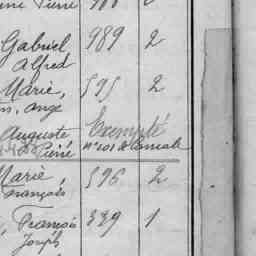 Pierre
Gabriel 989 2
Alfred
Marie, 595 2
Ange
Auguste Exempté
Pierre n° 101 de
Marie, 596 2
François
François 339 1
Joseph